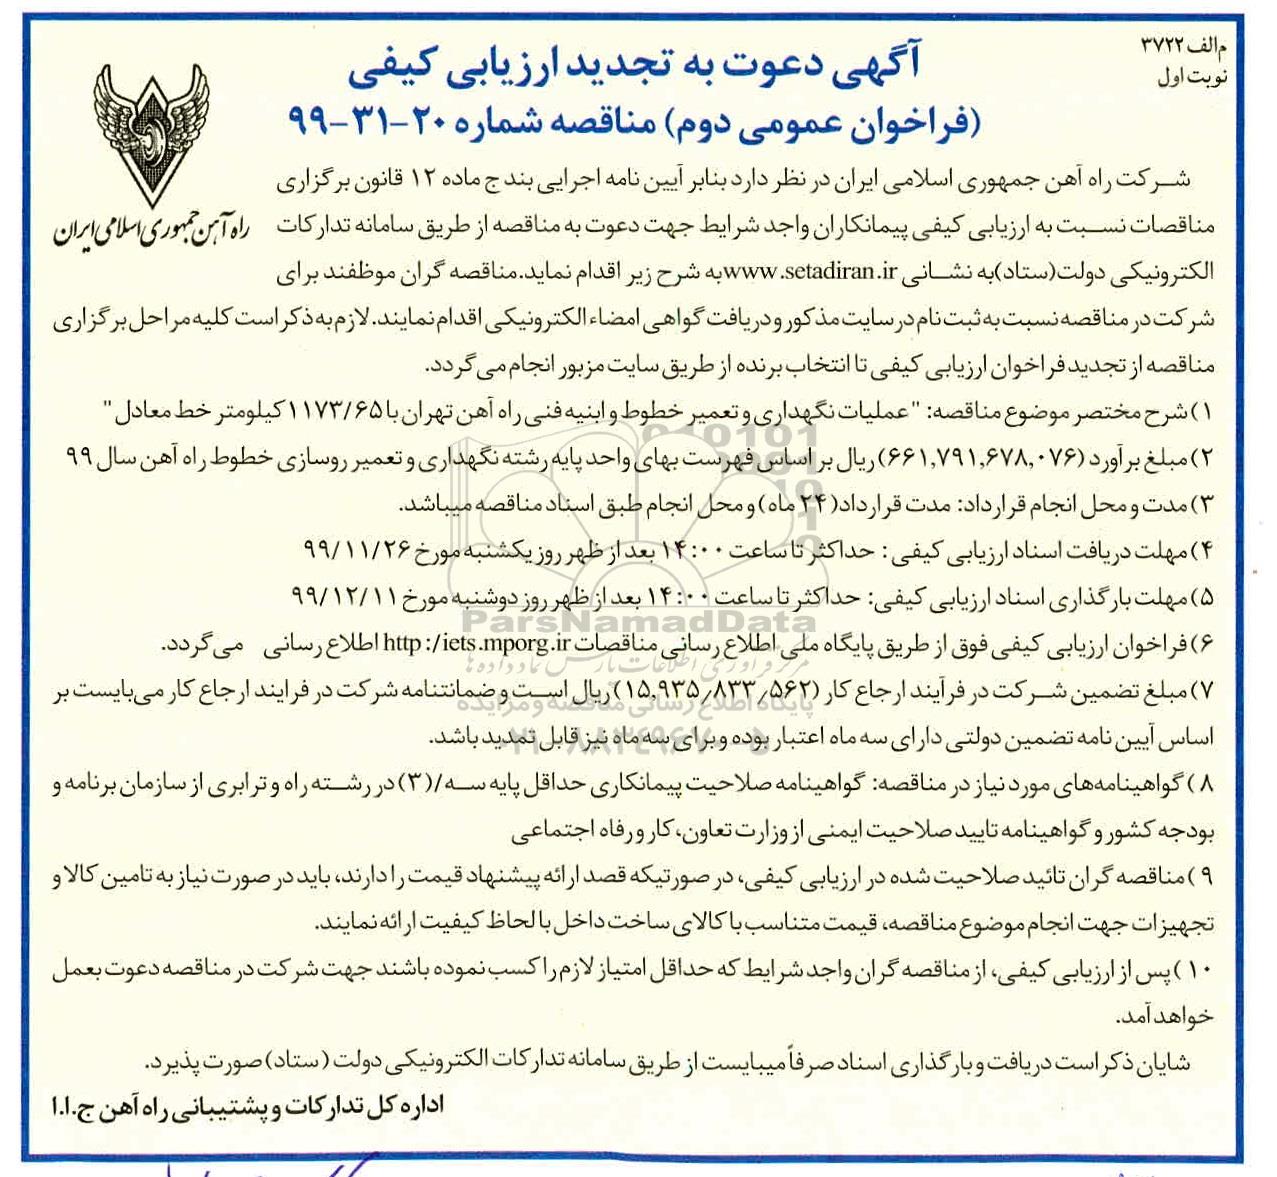 م الف ۳۷۲۲
نوبت اول
آگهی دعوت به تجدید ارزیابی کیفی
(فراخوان عمومی دوم) مناقصه شماره ۲۰-۳۱-۹۹
راه آهن جمهوری اسلامی ایران
شرکت راه آهن جمهوری اسلامی ایران در نظر دارد بنابر آیین نامه اجرایی بند ج ماده ۱۲ قانون برگزاری
مناقصات نسبت به ارزیابی کیفی پیمانکاران واجد شرایط جهت دعوت به مناقصه از طریق سامانه تدارکات
الکترونیکی دولت(ستاد)به نشانی www.setadiran.irبه شرح زیر اقدام نماید.مناقصه گران موظفند برای
شرکت در مناقصه نسبت به ثبت نام در سایت مذکور و دریافت گواهی امضاء الکترونیکی اقدام نمایند. لازم به ذکر است کلیه مراحل برگزاری
مناقصه از تجدید فراخوان ارزیابی کیفی تا انتخاب برنده از طریق سایت مزبور انجام می گردد.
۱)شرح مختصر موضوع مناقصه: "عملیات نگهداری و تعمیر خطوط و ابنیه فنی راه آهن تهران با ۱۱۷۳/۶۵کیلومتر خط معادل"
۲)مبلغ برآورد (۶۶۱,۷۹۱,۶۷۸,۰۷۶) ریال بر اساس فهرست بهای واحد پایه رشته نگهداری و تعمیر روسازی خطوط راه آهن سال ۹۹
۳)مدت و محل انجام قرارداد: مدت قرارداد(۲۴ ماه)و محل انجام طبق اسناد مناقصه میباشد.
۴)مهلت دریافت اسناد ارزیابی کیفی : حداکثر تا ساعت ۱۴:۰۰ بعد از ظهر روز یکشنبه مورخ ۹۹/۱۱/۲۶
۵)مهلت بارگذاری اسناد ارزیابی کیفی: حداکثر تا ساعت ۱۴:۰۰ بعد از ظهر روز دوشنبه مورخ ۹۹/۱۲/۱۱
۶)فراخوان ارزیابی کیفی فوق از طریق پایگاه ملی اطلاع رسانی مناقصات http:/iets.mporg.ir اطلاع رسانی می گردد.
۷)مبلغ تضمین شرکت در فرآیند ارجاع کار (۱۵،۹۳۵٫۸۳۳٫۵۶۲)ریال است و ضمانتنامه شرکت در فرایند ارجاع کار می‌بایست بر
اساس آیین نامه تضمین دولتی دارای سه ماه اعتبار بوده و برای سه ماه نیز قابل تمدید باشد.
۸) گواهینامه‌های مورد نیاز در مناقصه: گواهینامه صلاحیت پیمانکاری حداقل پایه سه/(۳)در رشته راه و ترابری از سازمان برنامه و
بودجه کشور و گواهینامه تایید صلاحیت ایمنی از وزارت تعاون، کار و رفاه اجتماعی
۹)مناقصه گران تائید صلاحیت شده در ارزیابی کیفی، در صورتیکه قصد ارائه پیشنهاد قیمت را دارند، باید در صورت نیاز به تامین کالا و
تجهیزات جهت انجام موضوع مناقصه، قیمت متناسب با کالای ساخت داخل با لحاظ کیفیت ارائه نمایند.
۱۰)پس از ارزیابی کیفی، از مناقصه گران واجد شرایط که حداقل امتیاز لازم را کسب نموده باشند جهت شرکت در مناقصه دعوت بعمل
خواهد آمد.
شایان ذکر است دریافت و بارگذاری اسناد صرفاً میبایست از طریق سامانه تدارکات الکترونیکی دولت (ستاد)صورت پذیرد.
اداره کل تدارکات و پشتیبانی راه آهن ج.ا.ا
ParsNamadData
مرکز فرآوری اطلاعات پارس نماد داده ها
پایگاه اطلاع رسانی مناقصه و مزایده